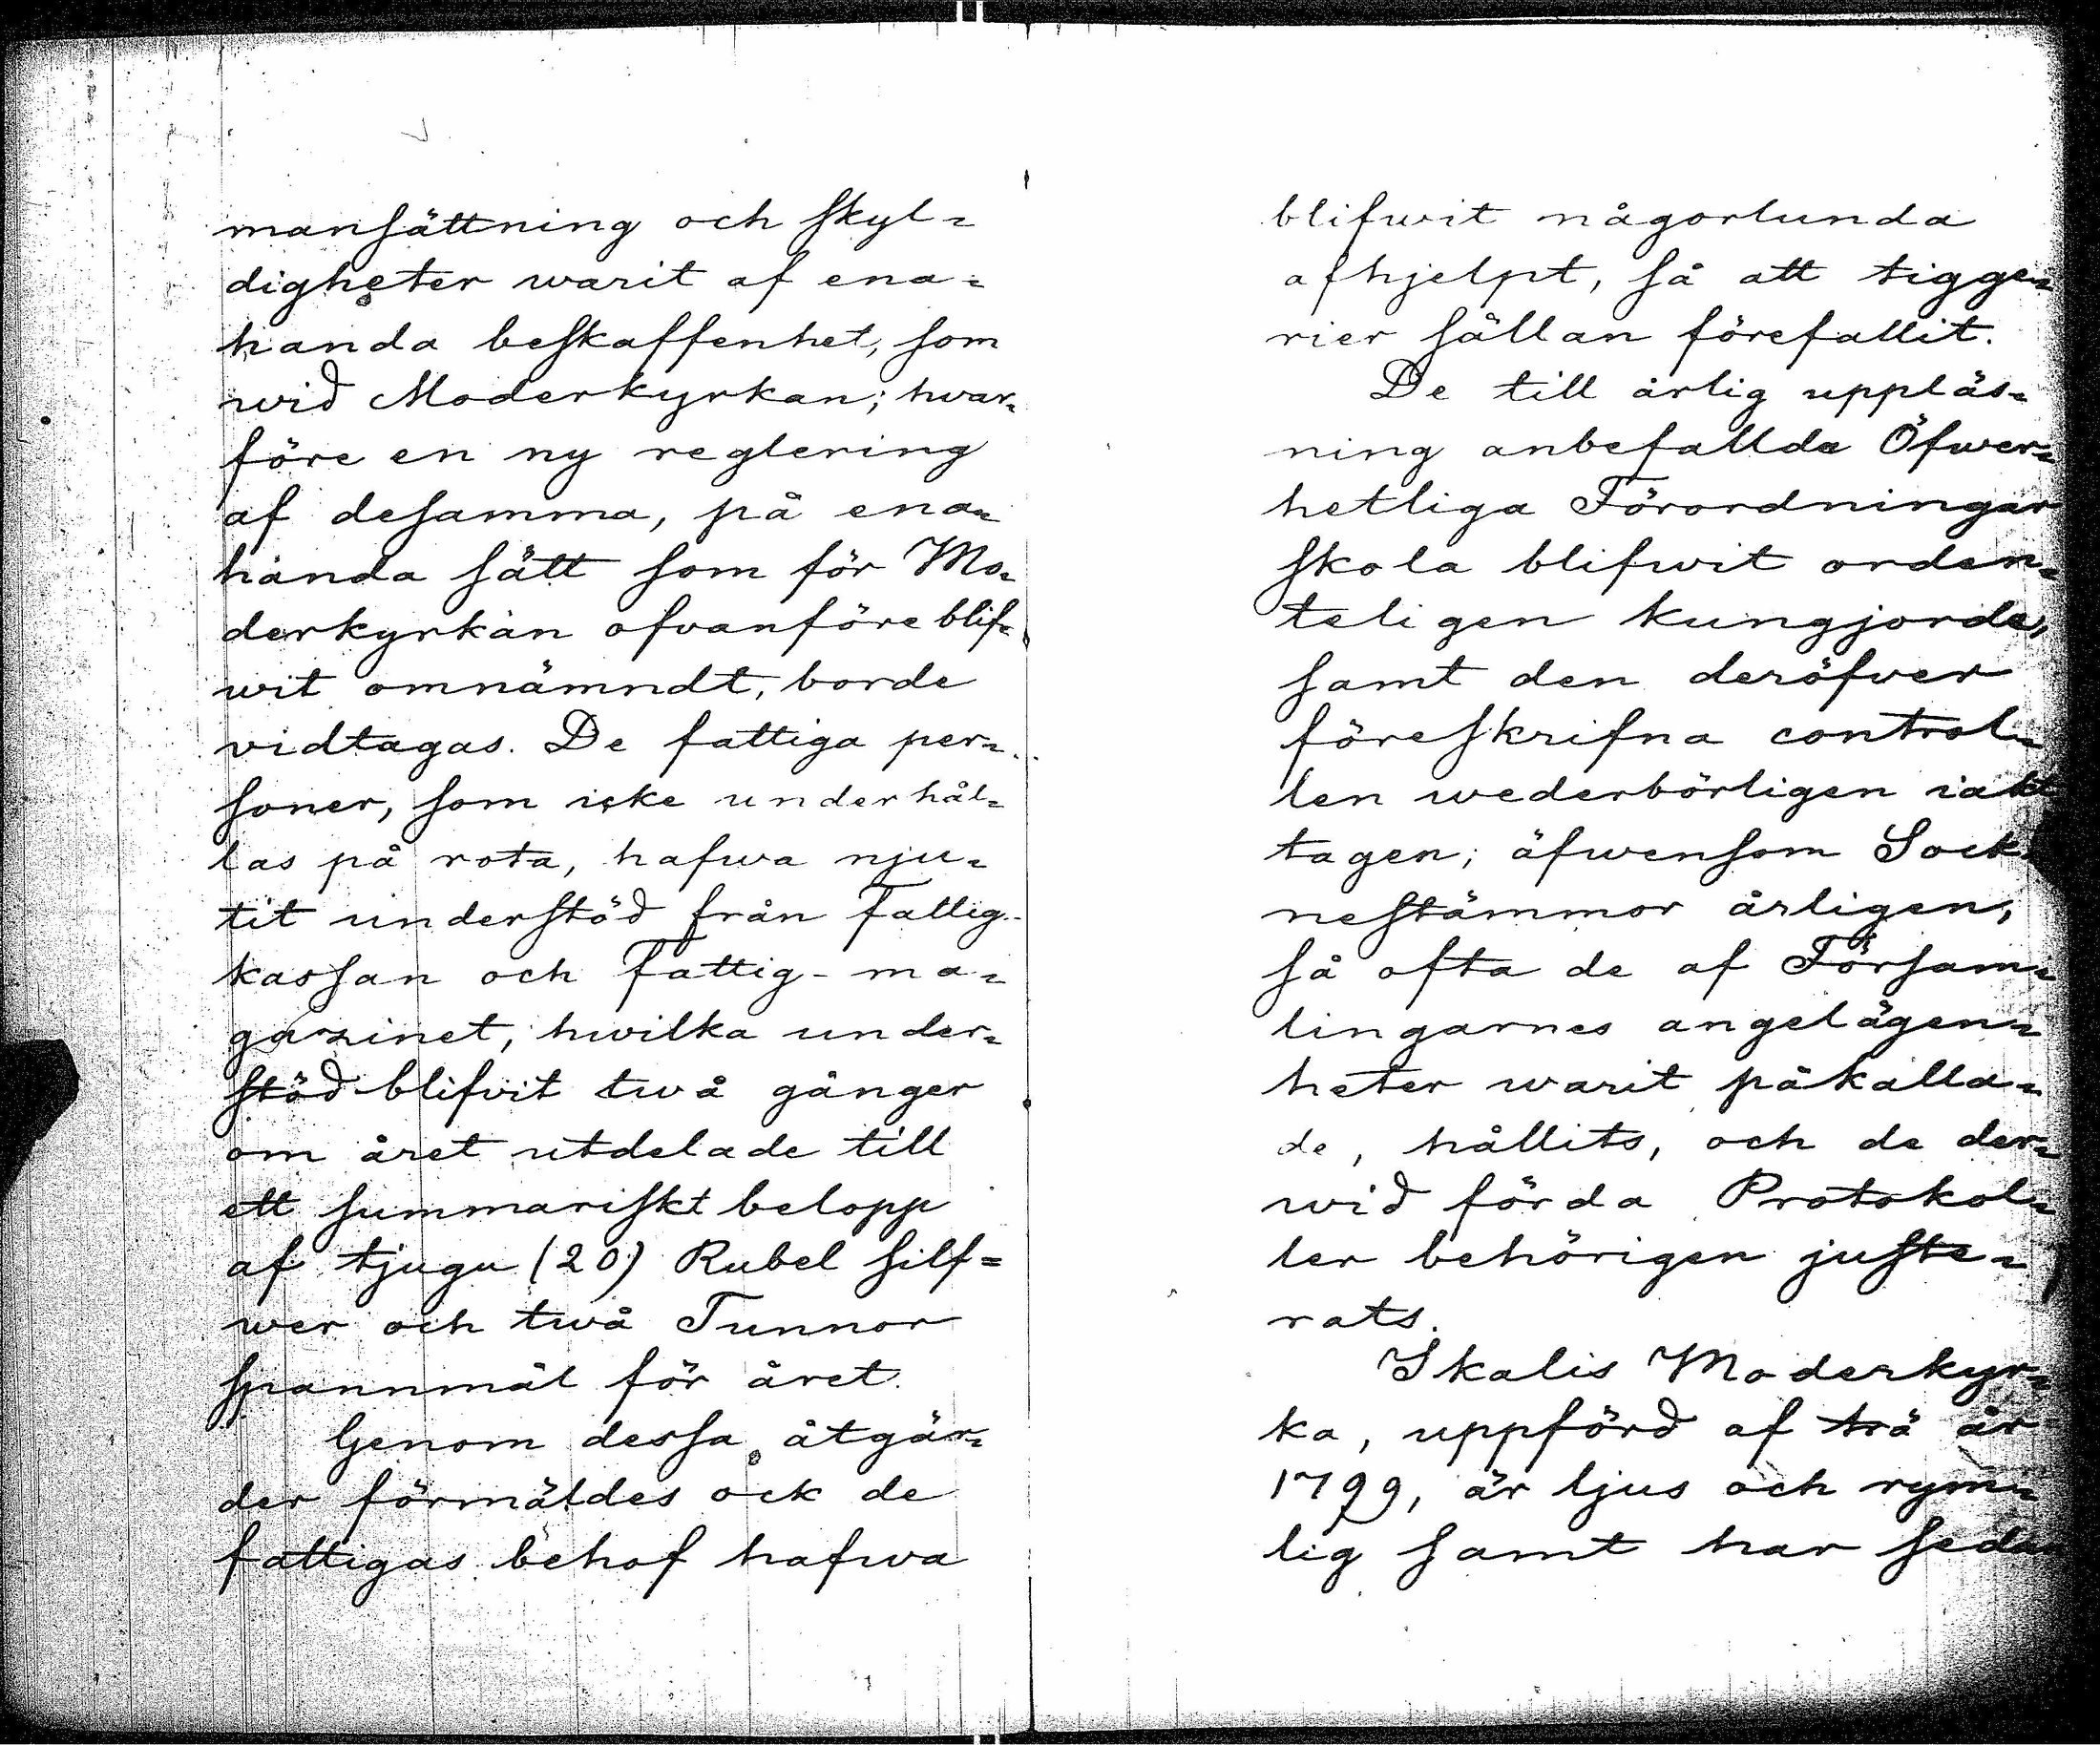 mansättning och skyl=
digheter warit af ena=
handa beskaffenhet, som
wid Moderkyrkan; hwar=
före en ny reglering
af desamma, på ena=
handa sätt som för Mo=
derkyrkan ofvanföre blif=
wit omnämndt, borde
vidtagas. De fattiga per=
soner, som icke underhål=
las på rota, hafwa nju=
tit understöd från Fattig-
kassan och Fattig-ma=
gazinet, hwilka under=
stöd blifvit twå gånger
om året utdelade till
ett summariskt belopp
af tjugu (20) Rubel silf=
wer och twå Tunnor
spannmål för året.
Genom dessa åtgär=
der förmäldes ock de
fattigas behof hafwa
blifwit någorlunda
afhjelpt, så att tigge=
rier sällan förefallit.
De till årlig uppläs=
ning anbefallda Öfwer=
hetliga Förordningar
skola blifwit orden=
teligen kungjorda,
samt den deröfver
föreskrifna control=
len wederbörligen iakt
tagen; äfwensom Sock=
nestämmor årligen,
så ofta de af Försam=
lingarnes angelägen=
heter warit påkalla=
de, hållits, och de der=
wid förda Protokol=
ler behörigen juste=
rats.
Ikalis Moderkyr=
ka, uppförd af trä år
1799, är ljus och rym=
lig samt har seda